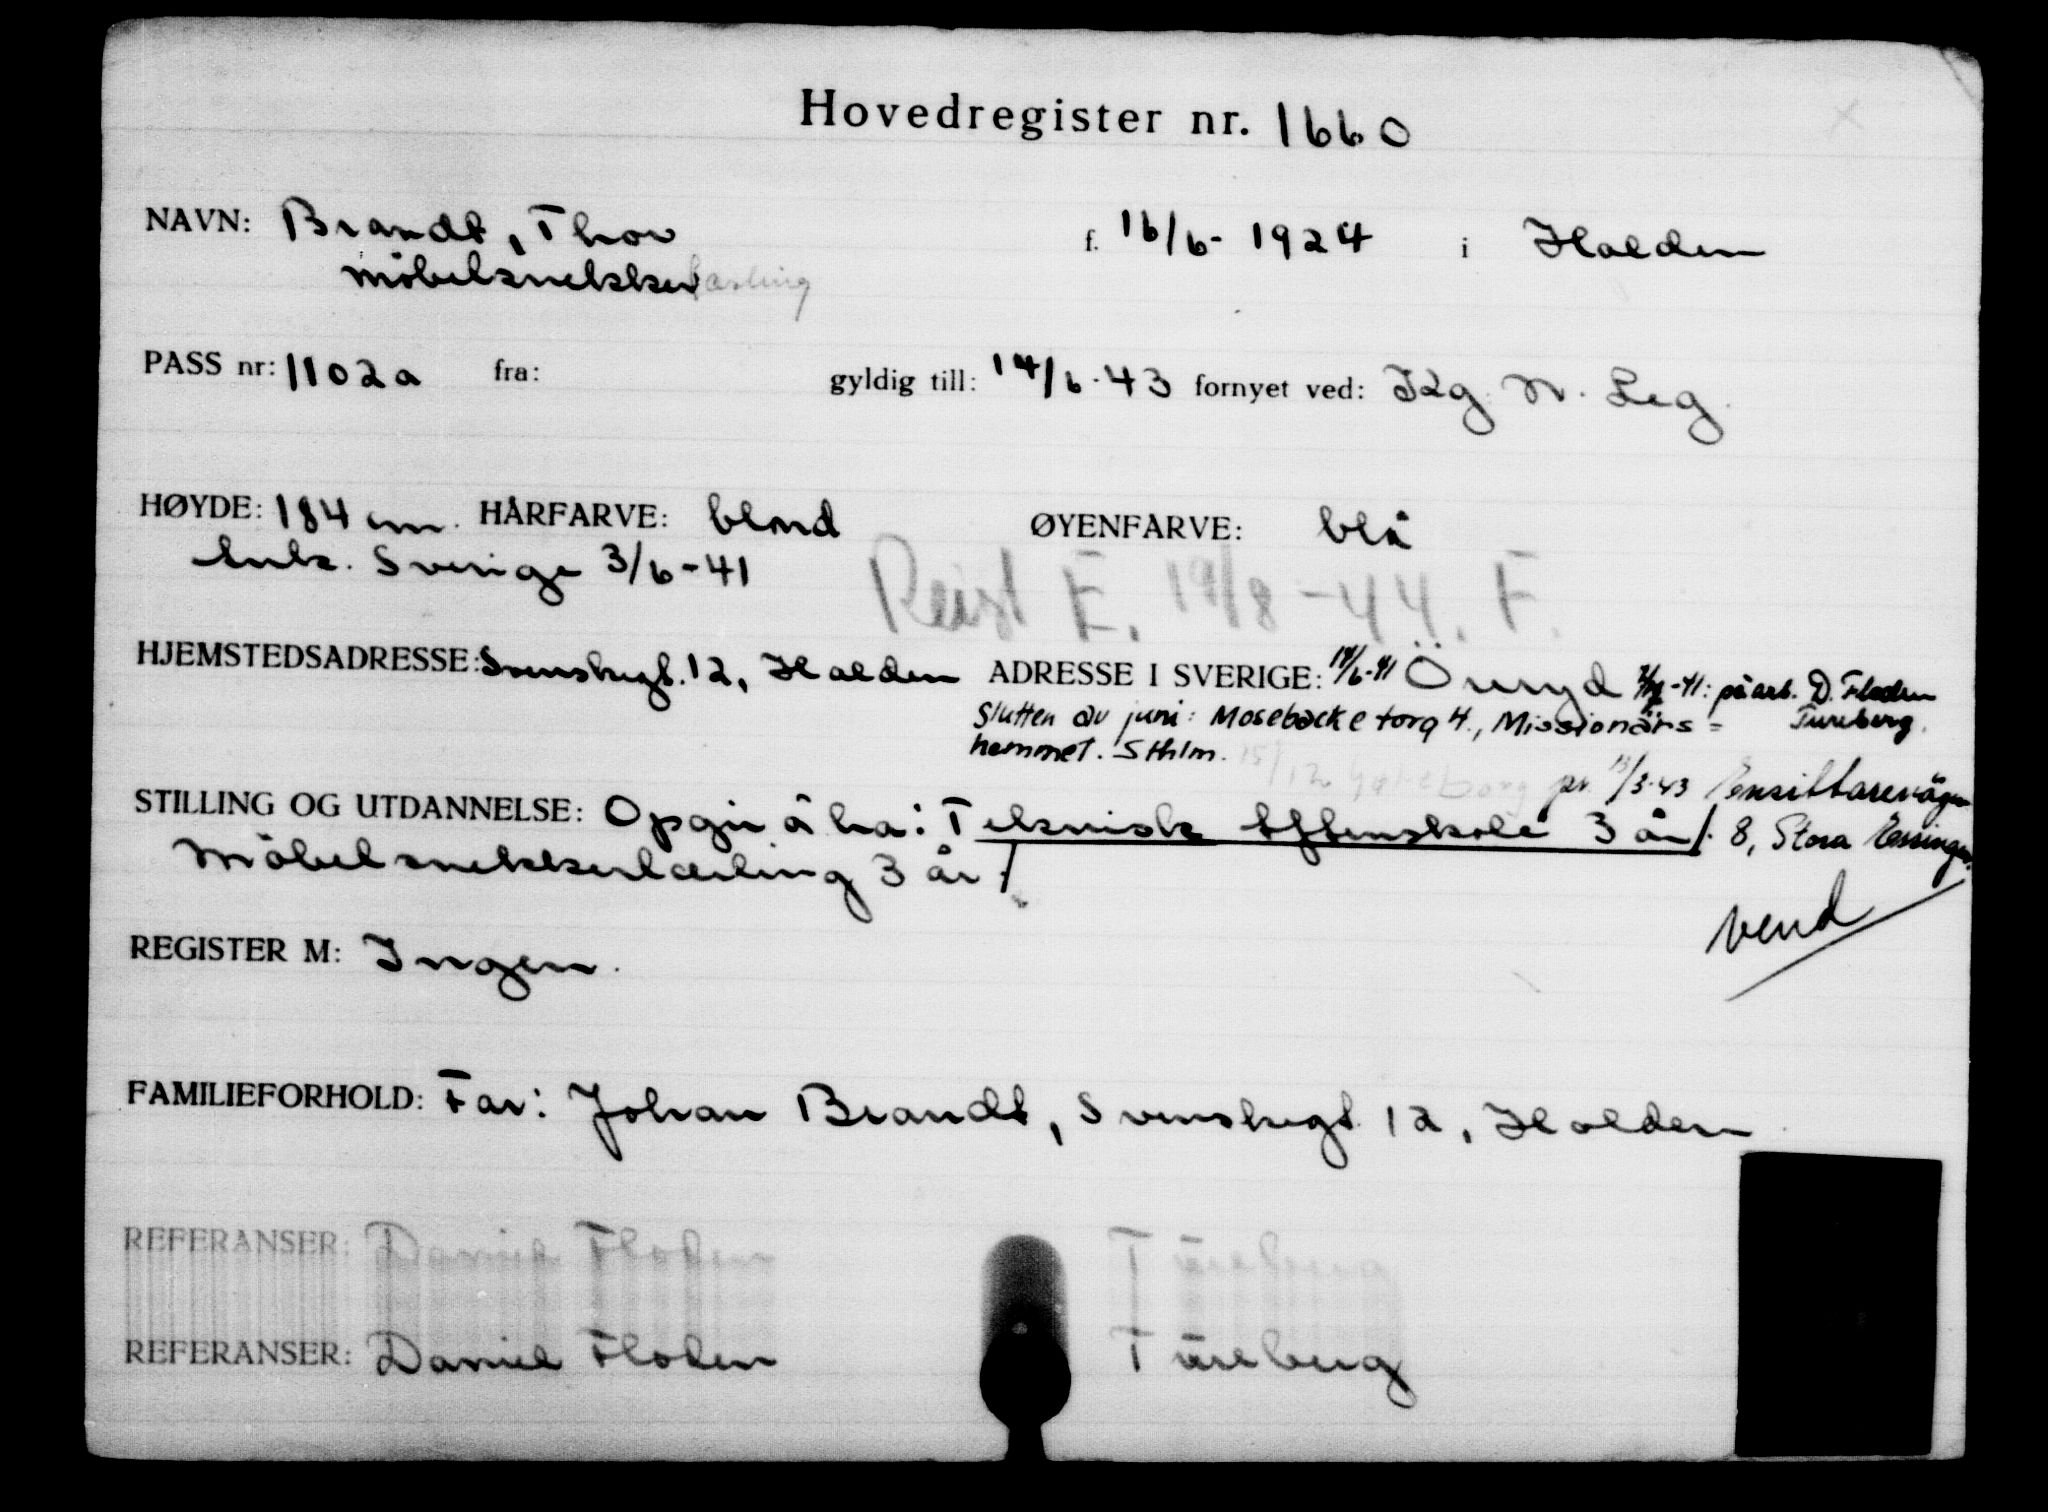 Hovedregister nr. 1660
NAVN: Brandt, Thor f. 16/6- 1924 i Halden
Møbelsnekkerlærling
PASS nr: 1102a fra: gyldig till: 14/6-43 fornyet ved: Kg. N. Leg.
HØYDE: 184 cm. HÅRFARVE: blond ØYENFARVE: blå
Ank. Sverige 3/6-41
Reist E. 19/8-44. F.
HJEMSTEDSADRESSE: Svenskegt. 12, Halden ADRESSE I SVERIGE: 14/6-41 Öreryd -41: på arb. D. Floden
Slutten av juni: Mosebacke torg 4., Missionärs= Tureberg.
hemmet. Sthlm. 15/12 Gøteborg pr. 13/3-43
STILLING OG UTDANNELSE: Opgir å ha: Teknisk Aftenskole 3 år/. 8, Stora Essingen.
Møbelsnekkerlærling 3 år/
vend
REGISTER M: Ingen.
FAMILIEFORHOLD: Far: Johan Brandt, Svenskegt. 12, Halden
REFERANSER: Daniel Floden Tureberg
REFERANSER: Daniel Floden Tureberg